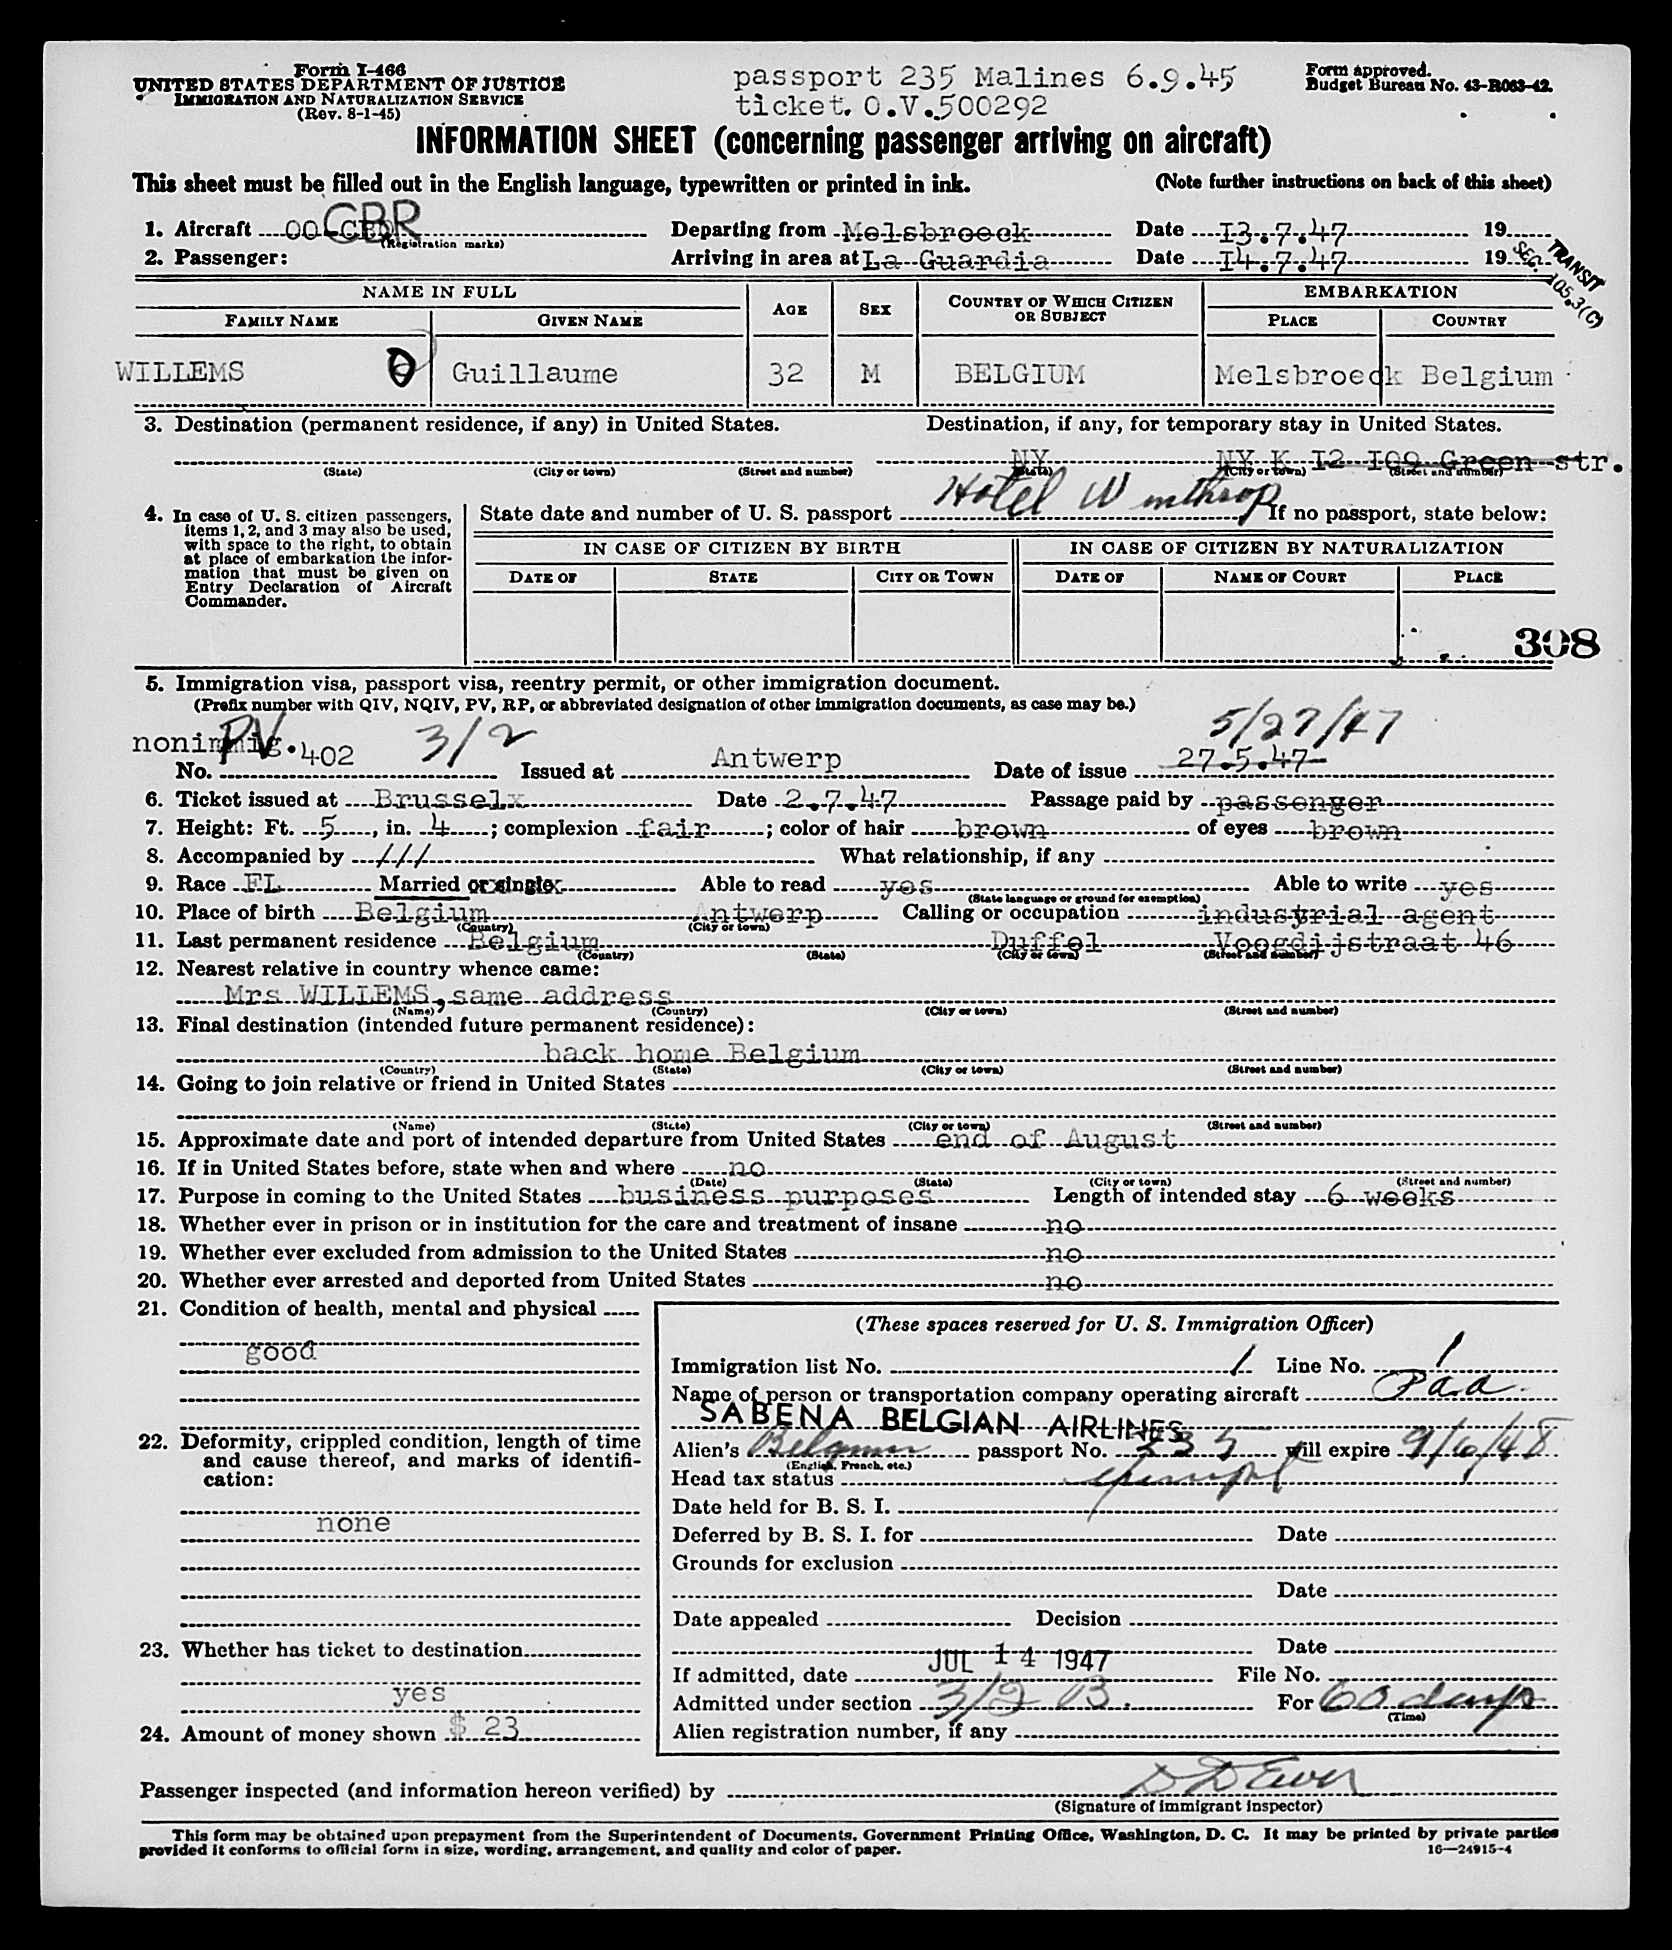 Form I-466
UNITED STATES DEPARTMENT OF JUSTICE
IMMIGRATION AND NATURALIZATION SERVICE
(Rev. 8-1-45)
passport 235 Malines 6.9.45
ticket. O.V.500292
Form approved.
Budget Bureau No. 43-R063-42.
INFORMATION SHEET (concerning passenger arriving on aircraft)
This sheet must be filled out in the English language, typewritten or printed in ink. (Note further instructions on back of this sheet)
1. Aircraft OO-CBR Departing from Melsbroeck Date 13.7.47 19
(Registration marks)
2. Passenger: Arriving in area at La Guardia Date 14.7.47 19
TRANSIT
SEC. 105.3(C)
NAME IN FULL AGE SEX COUNTRY OF WHICH CITIZEN OR SUBJECT EMBARKATION
FAMILY NAME GIVEN NAME PLACE COUNTRY
WILLEMS Guillaume 32 M BELGIUM Melsbroeck Belgium
3. Destination (permanent residence, if any) in United States. Destination, if any, for temporary stay in United States.
NY NY K I2 I09 Green str.
(State) (City or town) (Street and number) (State) (City or town) (Street and number)
Hotel Winthrop
4. In case of U. S. citizen passengers, items 1, 2, and 3 may also be used, with space to the right, to obtain at place of embarkation the information that must be given on Entry Declaration of Aircraft Commander.
State date and number of U. S. passport If no passport, state below:
IN CASE OF CITIZEN BY BIRTH IN CASE OF CITIZEN BY NATURALIZATION
DATE OF STATE CITY OR TOWN DATE OF NAME OF COURT PLACE
308
5. Immigration visa, passport visa, reentry permit, or other immigration document.
(Prefix number with QIV, NQIV, PV, RP, or abbreviated designation of other immigration documents, as case may be.)
PV 3/2 5/27/47
nonimmig. 402 Antwerp 27.5.47
No. Issued at Date of issue
6. Ticket issued at Brussels Date 2.7.47 Passage paid by passenger
7. Height: Ft. 5, in. 4; complexion fair; color of hair brown of eyes brown
8. Accompanied by /// What relationship, if any
9. Race FL Married or single Able to read yes Able to write yes
(State language or ground for exemption)
10. Place of birth Belgium Antwerp Calling or occupation industrial agent
(Country) (City or town)
11. Last permanent residence Belgium Duffel Voogdijstraat 46
(Country) (State) (City or town) (Street and number)
12. Nearest relative in country whence came:
Mrs WILLEMS, same address
(Name) (Country) (City or town) (Street and number)
13. Final destination (intended future permanent residence):
back home Belgium
(Country) (State) (City or town) (Street and number)
14. Going to join relative or friend in United States
(Name) (State) (City or town) (Street and number)
15. Approximate date and port of intended departure from United States end of August
16. If in United States before, state when and where no
(Date) (State) (City or town) (Street and number)
17. Purpose in coming to the United States business purposes Length of intended stay 6 weeks
18. Whether ever in prison or in institution for the care and treatment of insane no
19. Whether ever excluded from admission to the United States no
20. Whether ever arrested and deported from United States no
21. Condition of health, mental and physical
good
22. Deformity, crippled condition, length of time and cause thereof, and marks of identification:
none
23. Whether has ticket to destination
yes
24. Amount of money shown $ 23
(These spaces reserved for U. S. Immigration Officer)
Immigration list No. 1 Line No. 1
Name of person or transportation company operating aircraft Paa
SABENA BELGIAN AIRLINES
Alien's Belgium passport No. 235 will expire 9/6/48
(English, French, etc.)
Head tax status exempt
Date held for B. S. I.
Deferred by B. S. I. for Date
Grounds for exclusion
Date
Date appealed Decision
Date
If admitted, date JUL 14 1947 File No.
Admitted under section 3/2 B. For 60 days
(Time)
Alien registration number, if any
Passenger inspected (and information hereon verified) by
(Signature of immigrant inspector)
This form may be obtained upon prepayment from the Superintendent of Documents, Government Printing Office, Washington, D. C. It may be printed by private parties
provided it conforms to official form in size, wording, arrangement, and quality and color of paper.
16—24915-4